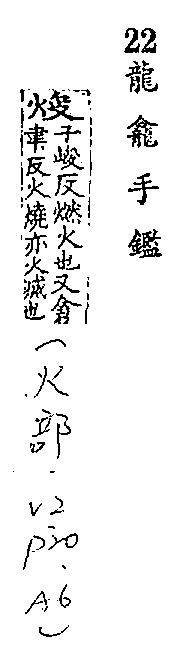 22龍龕手鑑
焌子峻反燃火也又倉
聿反火燒亦火滅也
(火部.V2
P30.
A6)